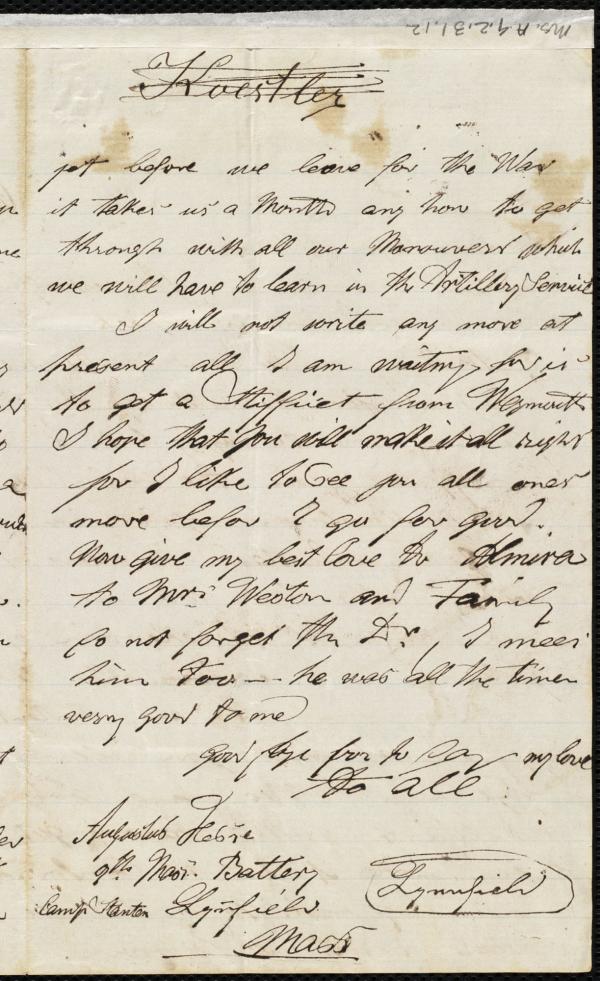 Ms. A.9.2.31.12
Koestler
yet before we leave for the War
it takes us a Month any how to get
through with all our Manouvers which
we will have to learn in the Artillery Service
I will not write any more at
present all I am waiting for is
to get a from Weymouth
I hope that you will make it all right
for I like to See you all ones
more befor I go for good.
Now give my best love to Almira
to Mrs Weston and Family
do not forget the Dr, I
him Too — he was all the timer
very good to me
good bye for to say my love
to all
Augustus Hesse
9th Mass. Battery
Camp Stanton Lynfield
Mass
Lynnfield